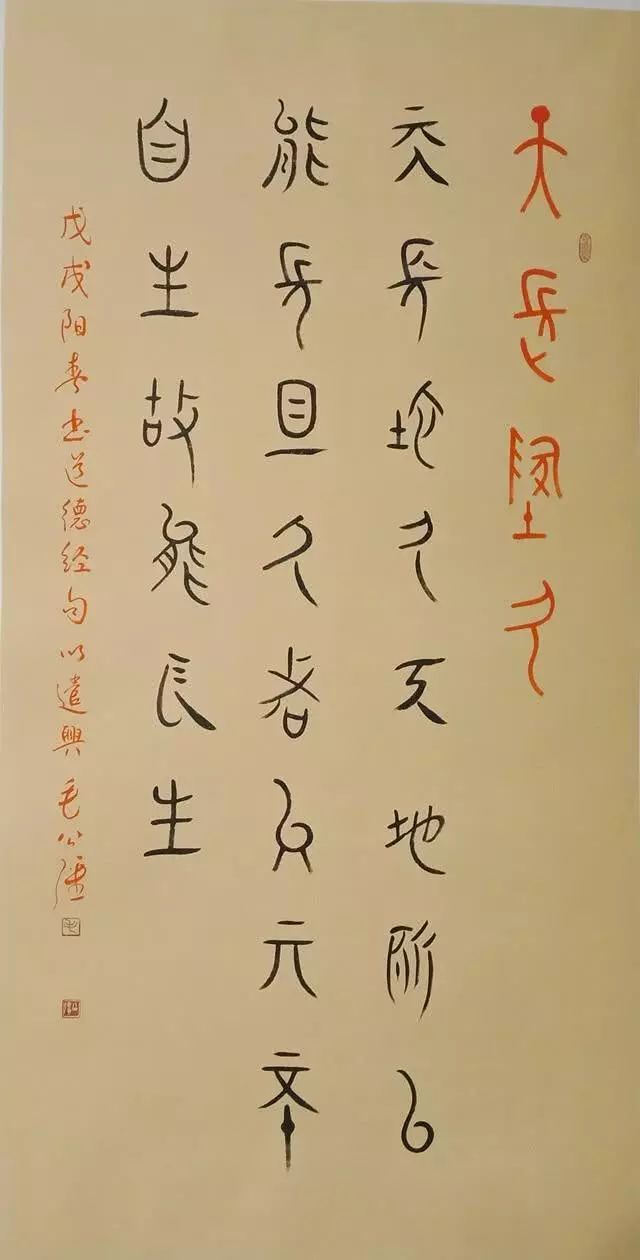 天長地久
天長地久天地所以
能長且久者以其不
自生故能長生
戊戌阳春书道德经句以遣興毛公